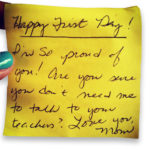 Happy First Day!
I'm so proud of
you! Are you sure
you don't need me
to talk to your
teachers? Love you,
Mom